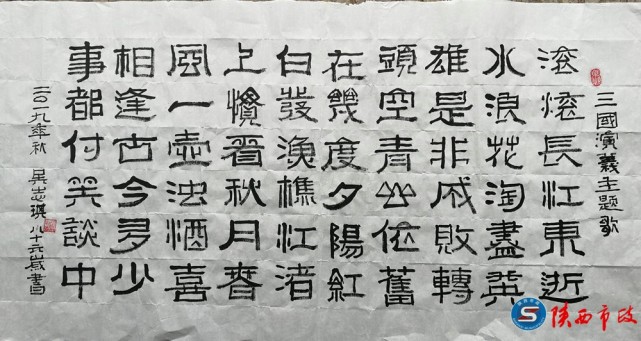 三國演義主題歌
滚滚長江東逝
水浪花淘盡英
雄是非成敗轉
頭空青山依舊
在幾度夕陽紅
白發漁樵江渚
上慣看秋月春
風一壺浊酒喜
相逢古今多少
事都付笑談中
二〇一九年秋 吴志 八十六歲書
陕西市政